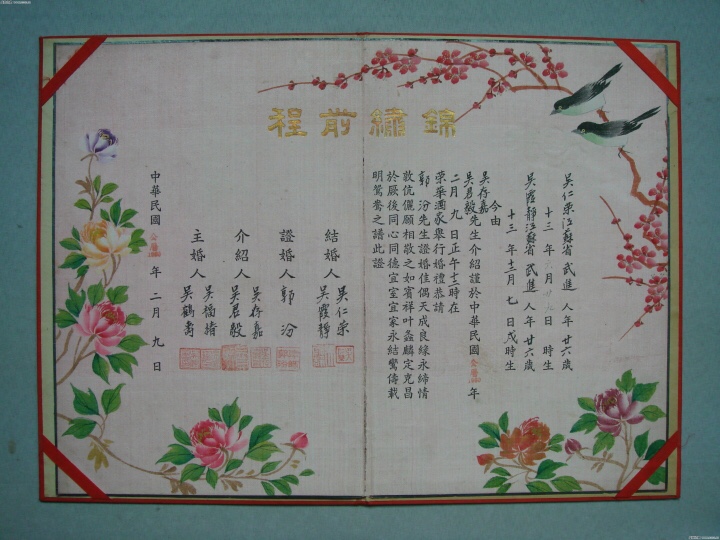 錦繡前程
吳仁榮江蘇省武進人年廿六歲
十三年 月 日 時生
吳霞靜江蘇省武進人年廿六歲
十三年十二月七日戌時生
今由
吳存嘉
吳君毅先生介紹謹於中華民國 年
二月九日正午十二時在
榮華酒家舉行婚禮恭請
郭汾先生證婚佳偶天成良緣永締情
敦伉儷願相敬之如賓祥叶螽麟定克昌
於厥後同心同德宜室宜家永結鸞儔載
明鴛鴦之譜此證
結婚人 吳仁榮
吳霞靜
證婚人 郭汾
介紹人 吳存嘉
吳君毅
主婚人 吳 
吳鶴 
中華民國 年二月九日